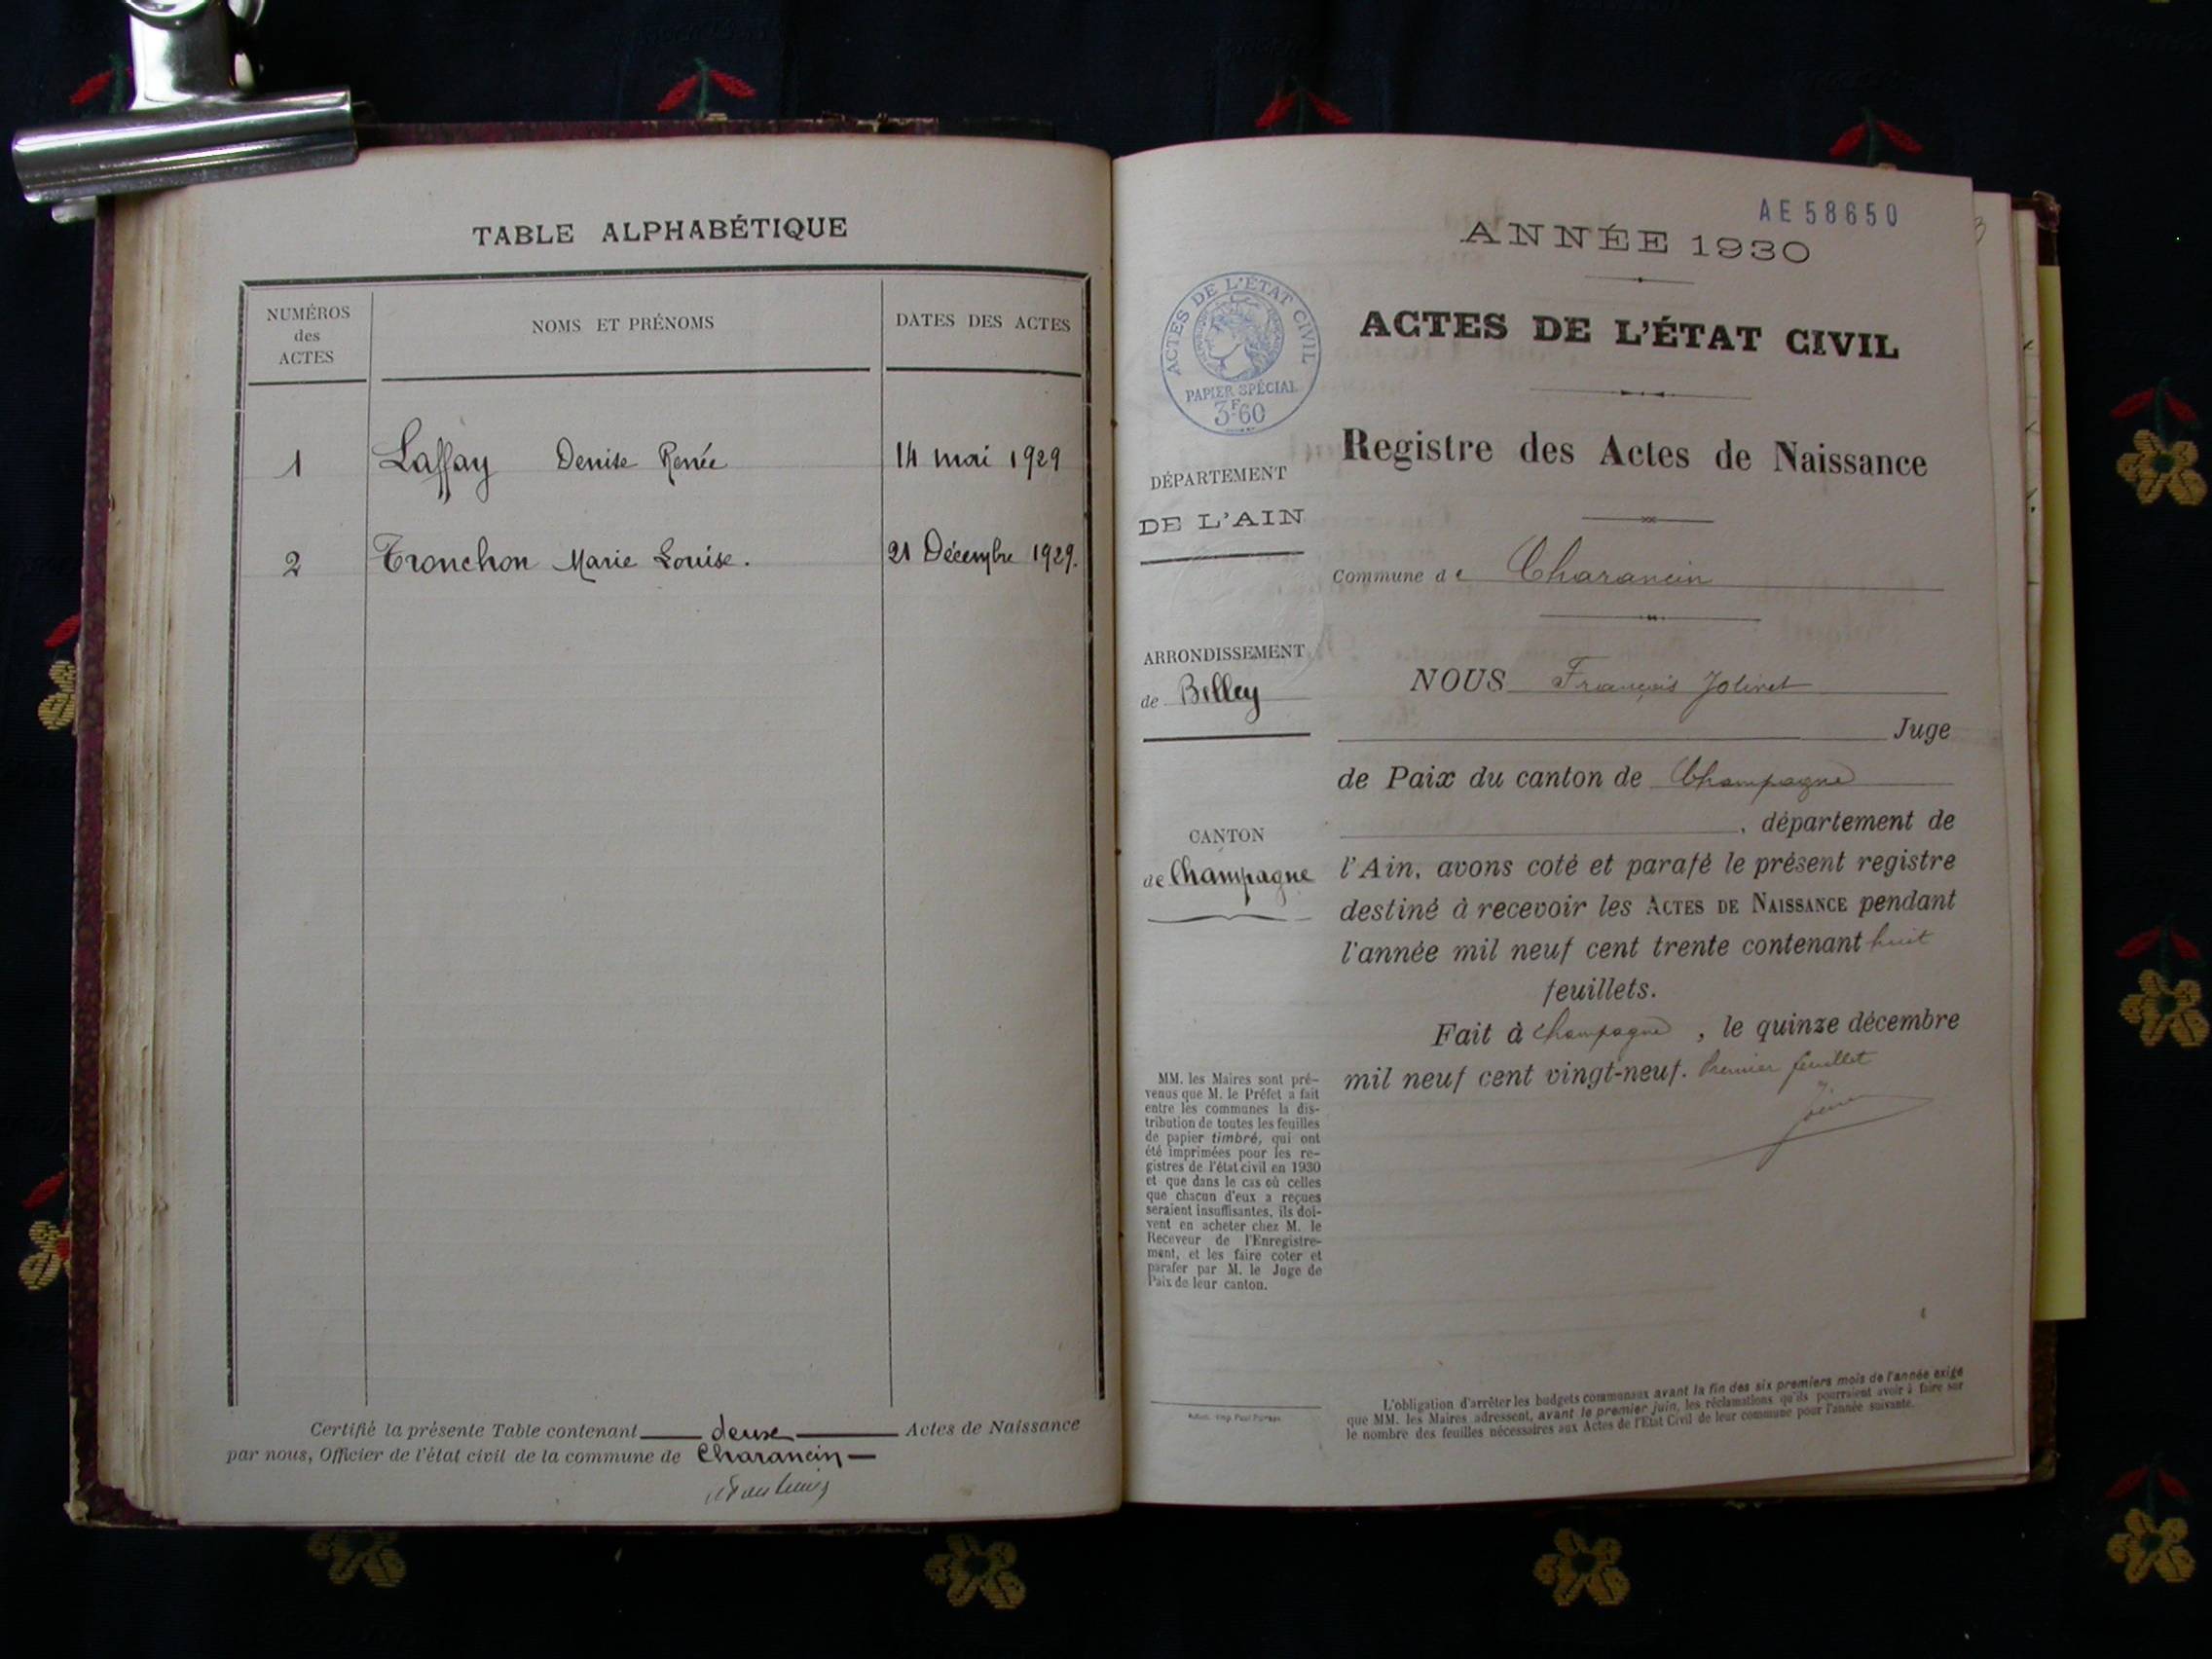 TABLE ALPHABÉTIQUE
NUMÉROS
des
ACTES
NOMS ET PRÉNOMS
DATES DES ACTES
1 Laffay Denise Renée 14 mai 1929
2 Tronchon Marie Louise. 21 Décembre 1929.
Certifié la présente Table contenant deux Actes de Naissance
par nous, Officier de l'état civil de la commune de Charancin
AE 58650
ANNÉE 1930
ACTES DE L'ÉTAT CIVIL
PAPIER SPÉCIAL
3F60
ACTES DE L'ÉTAT CIVIL
Registre des Actes de Naissance
Commune de Charancin
DÉPARTEMENT
DE L'AIN
ARRONDISSEMENT
de Belley
CANTON
de Champagne
NOUS François Jolivet
Juge
de Paix du canton de Champagne
, département de
l'Ain, avons coté et parafé le présent registre
destiné à recevoir les ACTES DE NAISSANCE pendant
l'année mil neuf cent trente contenant huit
feuillets.
Fait à Champagne, le quinze décembre
mil neuf cent vingt-neuf. Premier feuillet
MM. les Maires sont pré-
venus que M. le Préfet a fait
entre les communes la dis-
tribution de toutes les feuilles
de papier timbré, qui ont
été imprimées pour les re-
gistres de l'état civil en 1930
et que dans le cas où celles
que chacun d'eux a reçues
seraient insuffisantes, ils doi-
vent en acheter chez M. le
Receveur de l'Enregistre-
ment, et les faire coter et
parafer par M. le Juge de
Paix de leur canton.
L'obligation d'arrêter les budgets communaux avant la fin des six premiers mois de l'année exige
que MM. les Maires adressent, avant le premier juin, les réclamations qu'ils pourraient avoir à faire sur
le nombre des feuilles nécessaires aux Actes de l'État Civil de leur commune pour l'année suivante.